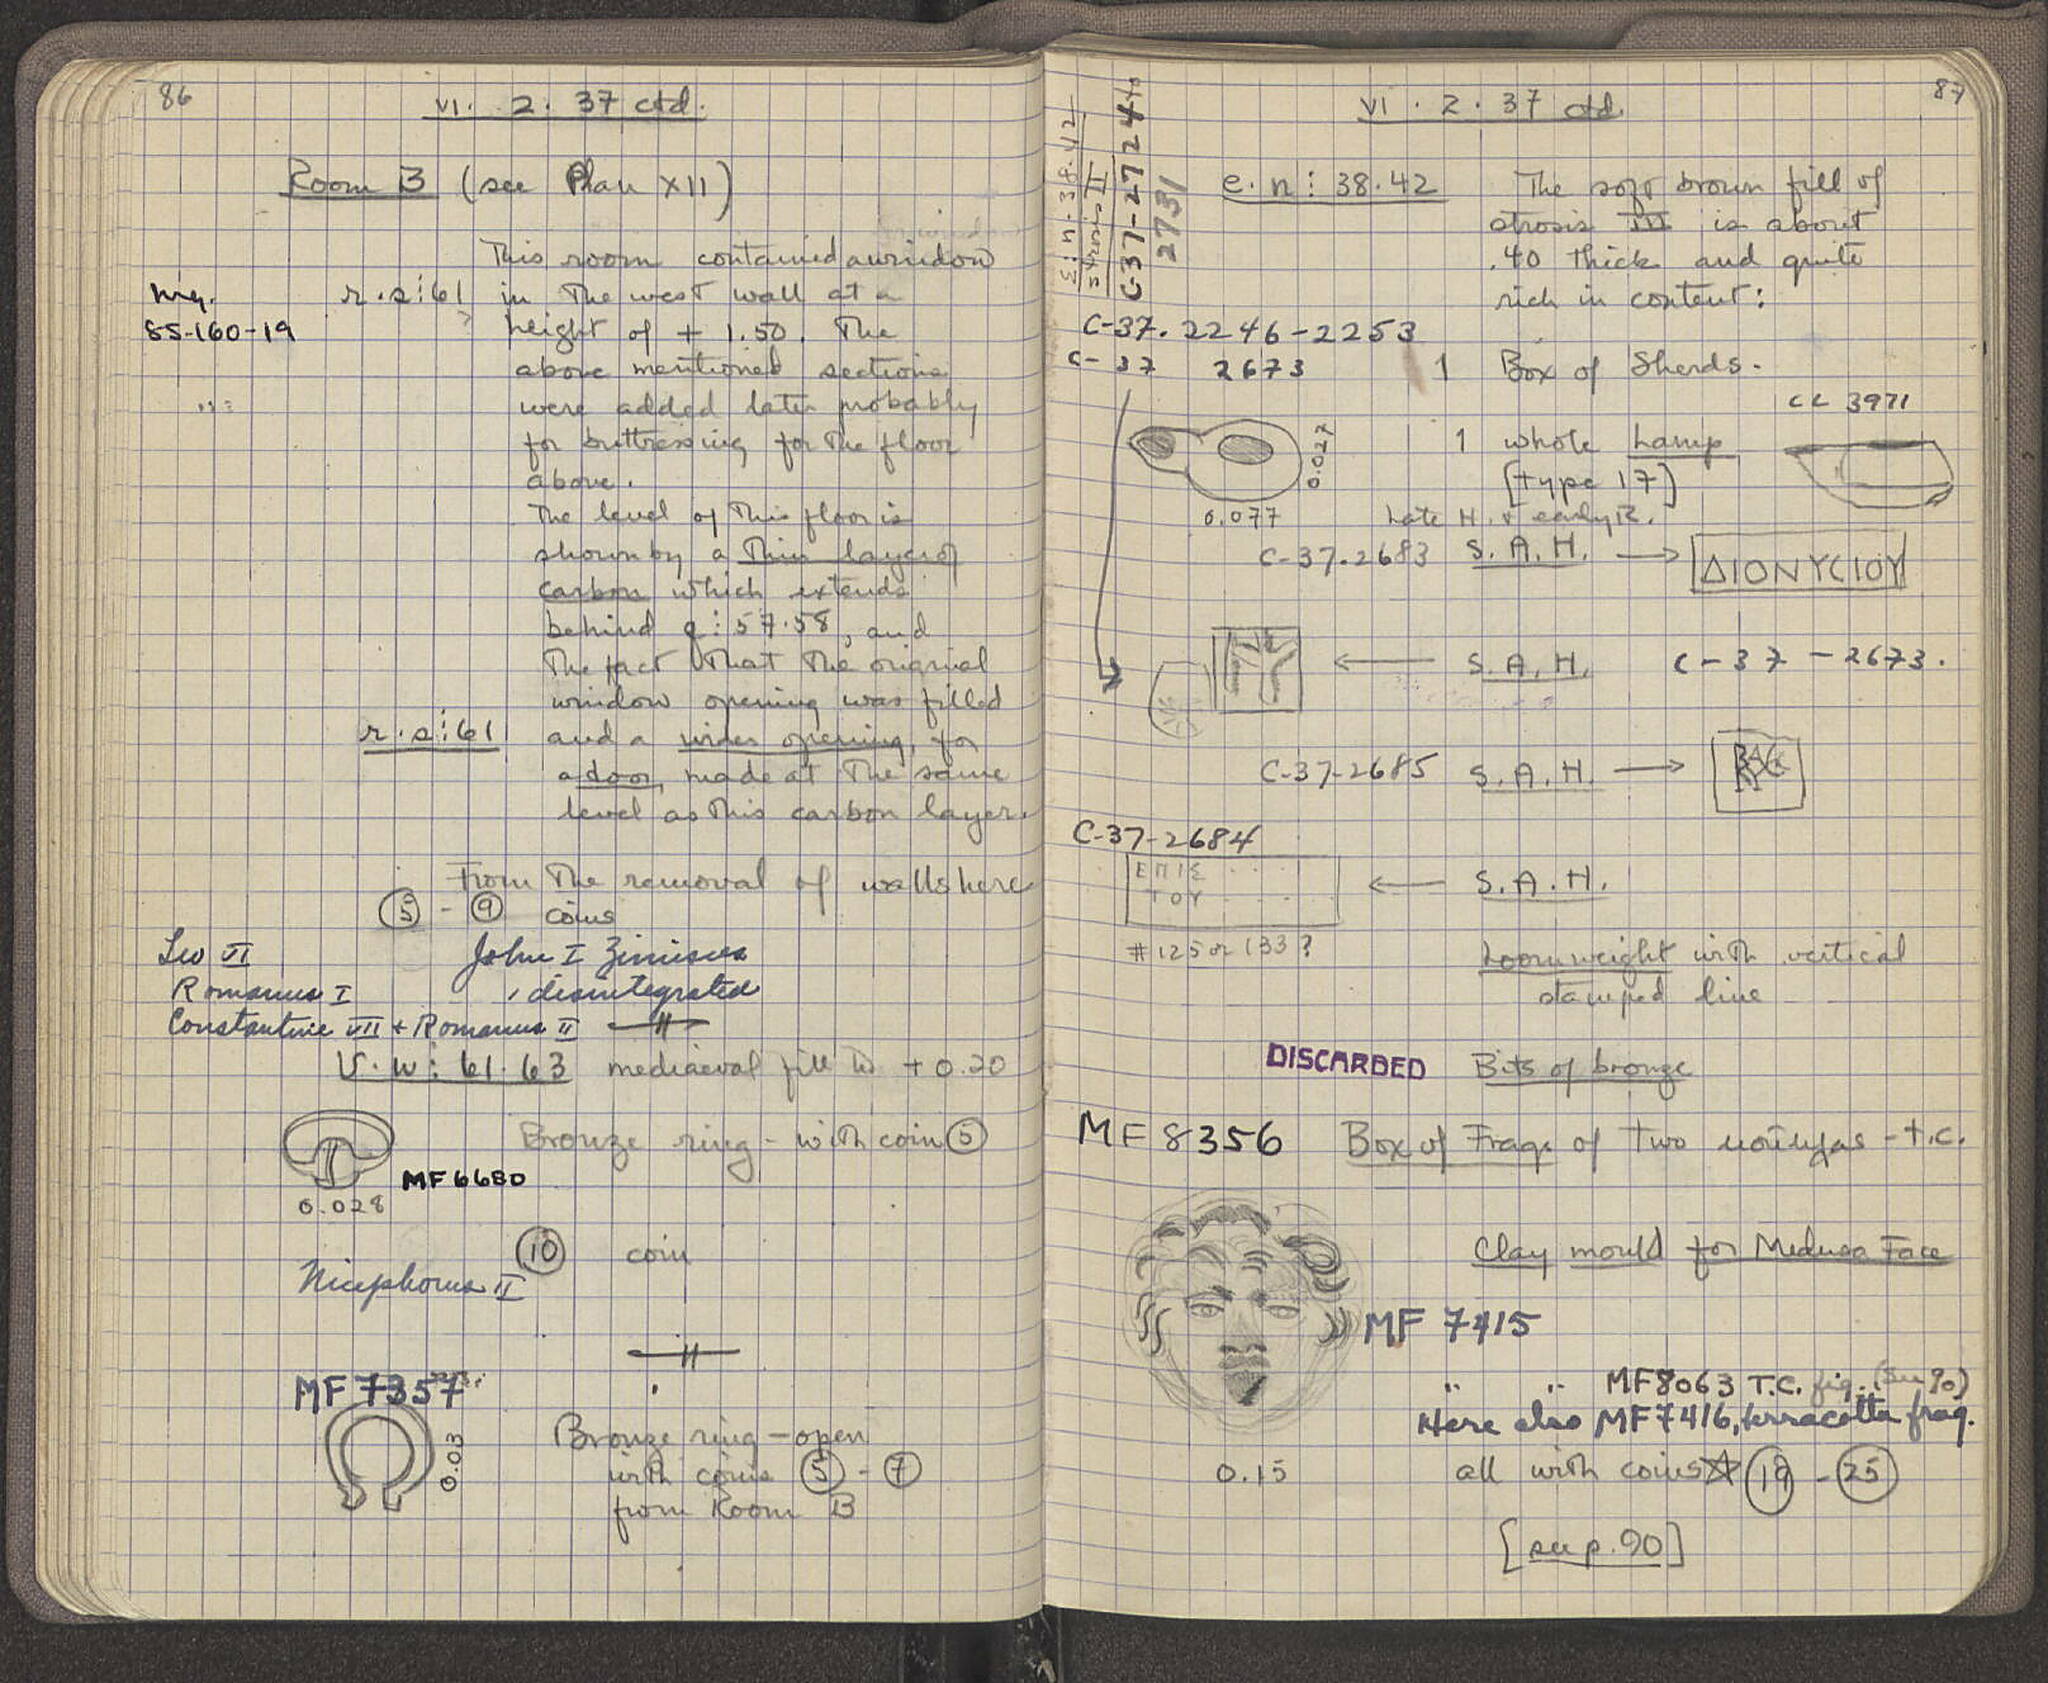 86
VI. 2. 37 ctd.
Room B (see Plan XII)
This room contained a window
neg. r.s:61 in the west wall at a
85-160-19 height of + 1.50. The
above mentioned sections
were added later probably
for buttressing for the floor
above.
The level of this floor is
shown by a thin layer of
carbon which extends
behind q:57.58, and
the fact that the original
window opening was filled
r.s:61 and a wider opening, for
a door, made at the same
level as this carbon layer.
From the removal of walls here
⑤ - ⑨ coins
Leo VI John I Zimisces
Romanus I , disintegrated
Constantine VII + Romanus II
V.W: 61.63 mediaeval fill to + 0.20
Bronze ring - with coin ⑤
MF 6680
0.028
⑩ coin
Nicephorus II
MF 7357
0.03
Bronze ring - open
with coins ⑤ - ⑦
from Room B
87
VI. 2. 37 ctd.
Σ:n.38.42
strosis II
C-37-2724
2731
e.n: 38.42 The soft brown fill of
strosis III is about
.40 thick and quite
rich in content:
C-37. 2246-2253
C-37 2673 1 Box of Sherds.
CL 3971
1 whole Lamp
0.027
[type 17]
0.077 Late H. + early R.
C-37-2683 S.A.H. → ΔΙΟΝΥCΙΟΥ
← S.A.H. C-37-2673.
C-37-2685 S.A.H. →
C-37-2684
ΕΠΙΣ ....
ΤΟΥ .....
← S.A.H.
#125 or 133?
Loomweight with vertical
stamped line
DISCARDED Bits of bronze
MF 8356 Box of Frags of two - t.c.
Clay mould for Medusa Face
MF 7415
" " MF8063 T.C. fig. (see 90)
Here also MF7416, terracotta frag.
0.15 all with coins ☆ ⑲ - ㉕
[see p. 90]